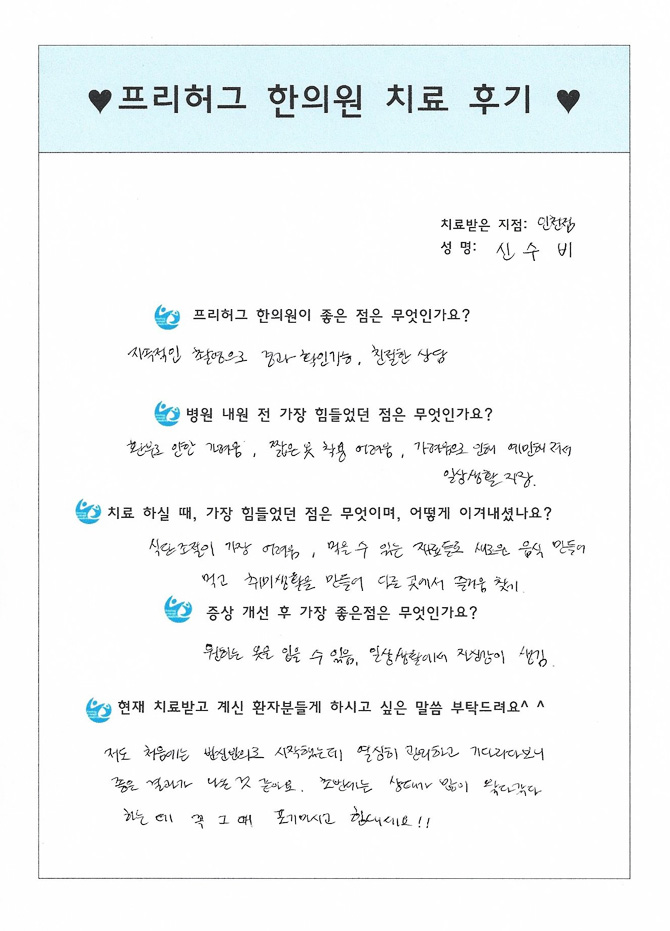 ♥프리허그 한의원 치료 후기 ♥
치료받은 지점: 인천점
성 명: 신수비
프리허그 한의원이 좋은 점은 무엇인가요?
지속적인 촬영으로 경과 확인가능, 친절한 상담
병원 내원 전 가장 힘들었던 점은 무엇인가요?
환부로 인한 가려움, 짧은 옷 착용 어려움, 가려움으로 인해 예민해져서
일상생활 지장.
치료 하실 때, 가장 힘들었던 점은 무엇이며, 어떻게 이겨내셨나요?
식단조절이 가장 어려움, 먹을 수 있는 재료들로 새로운 음식 만들어
먹고 취미생활을 만들어 다른 곳에서 즐거움 찾기.
증상 개선 후 가장 좋은점은 무엇인가요?
원하는 옷을 입을 수 있음, 일상생활에서 자신감이 생김.
현재 치료받고 계신 환자분들게 하시고 싶은 말씀 부탁드려요^ ^
저도 처음에는 반신반의로 시작했는데 열심히 관리하고 기다리다보니
좋은 결과가 나는 것 같아요. 초반에는 상태가 많이 왔다갔다
하는데 꼭 그 때 포기마시고 힘내세요!!